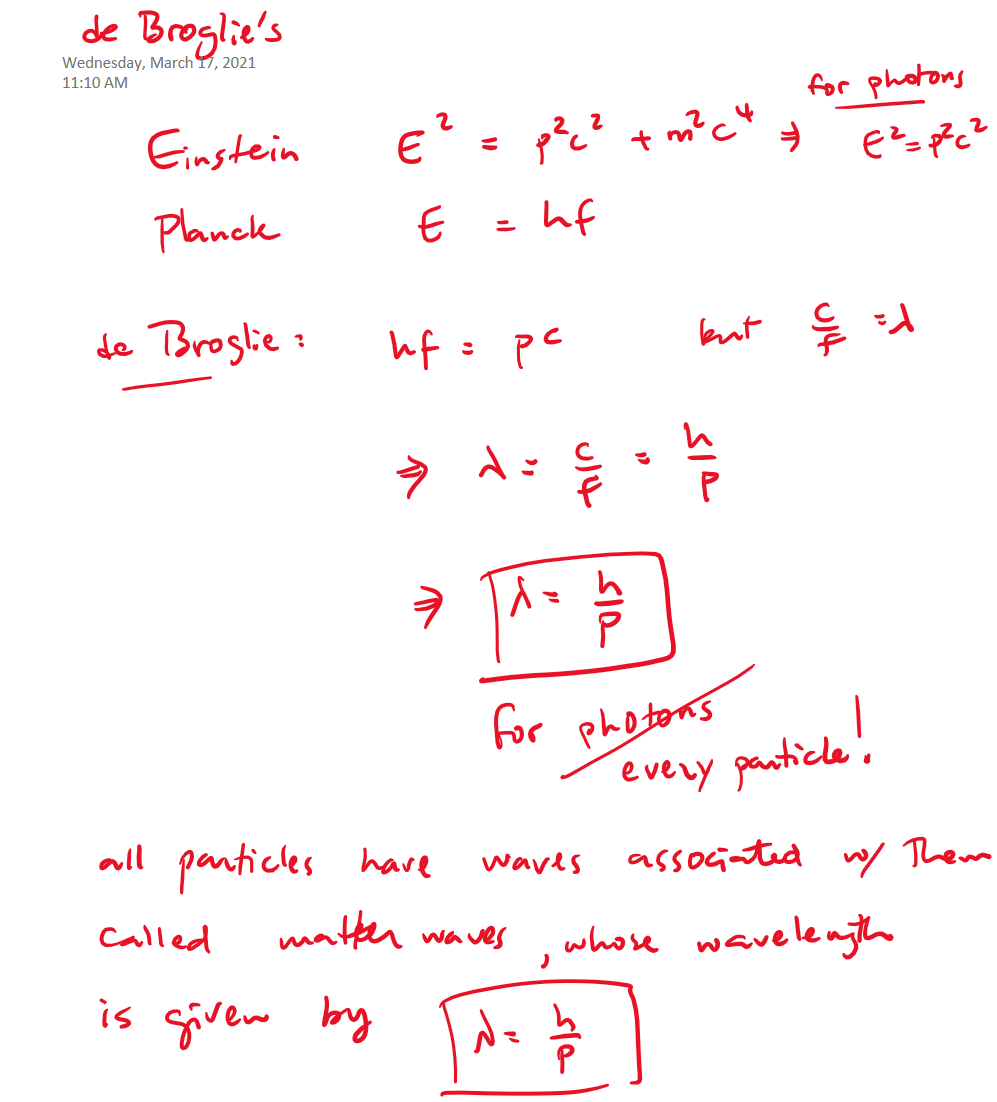 de Broglie's
Wednesday, March 17, 2021
11:10 AM
for photons
Einstein E² = p²c² + m²c⁴ ⇒ E² = p²c²
Planck E = hf
de Broglie: hf = pc but c/f = λ
⇒ λ = c/f = h/p
⇒ λ = h/p
for photons
every particle!
all particles have waves associated w/ Them
called matter waves, whose wavelength
is given by λ = h/p